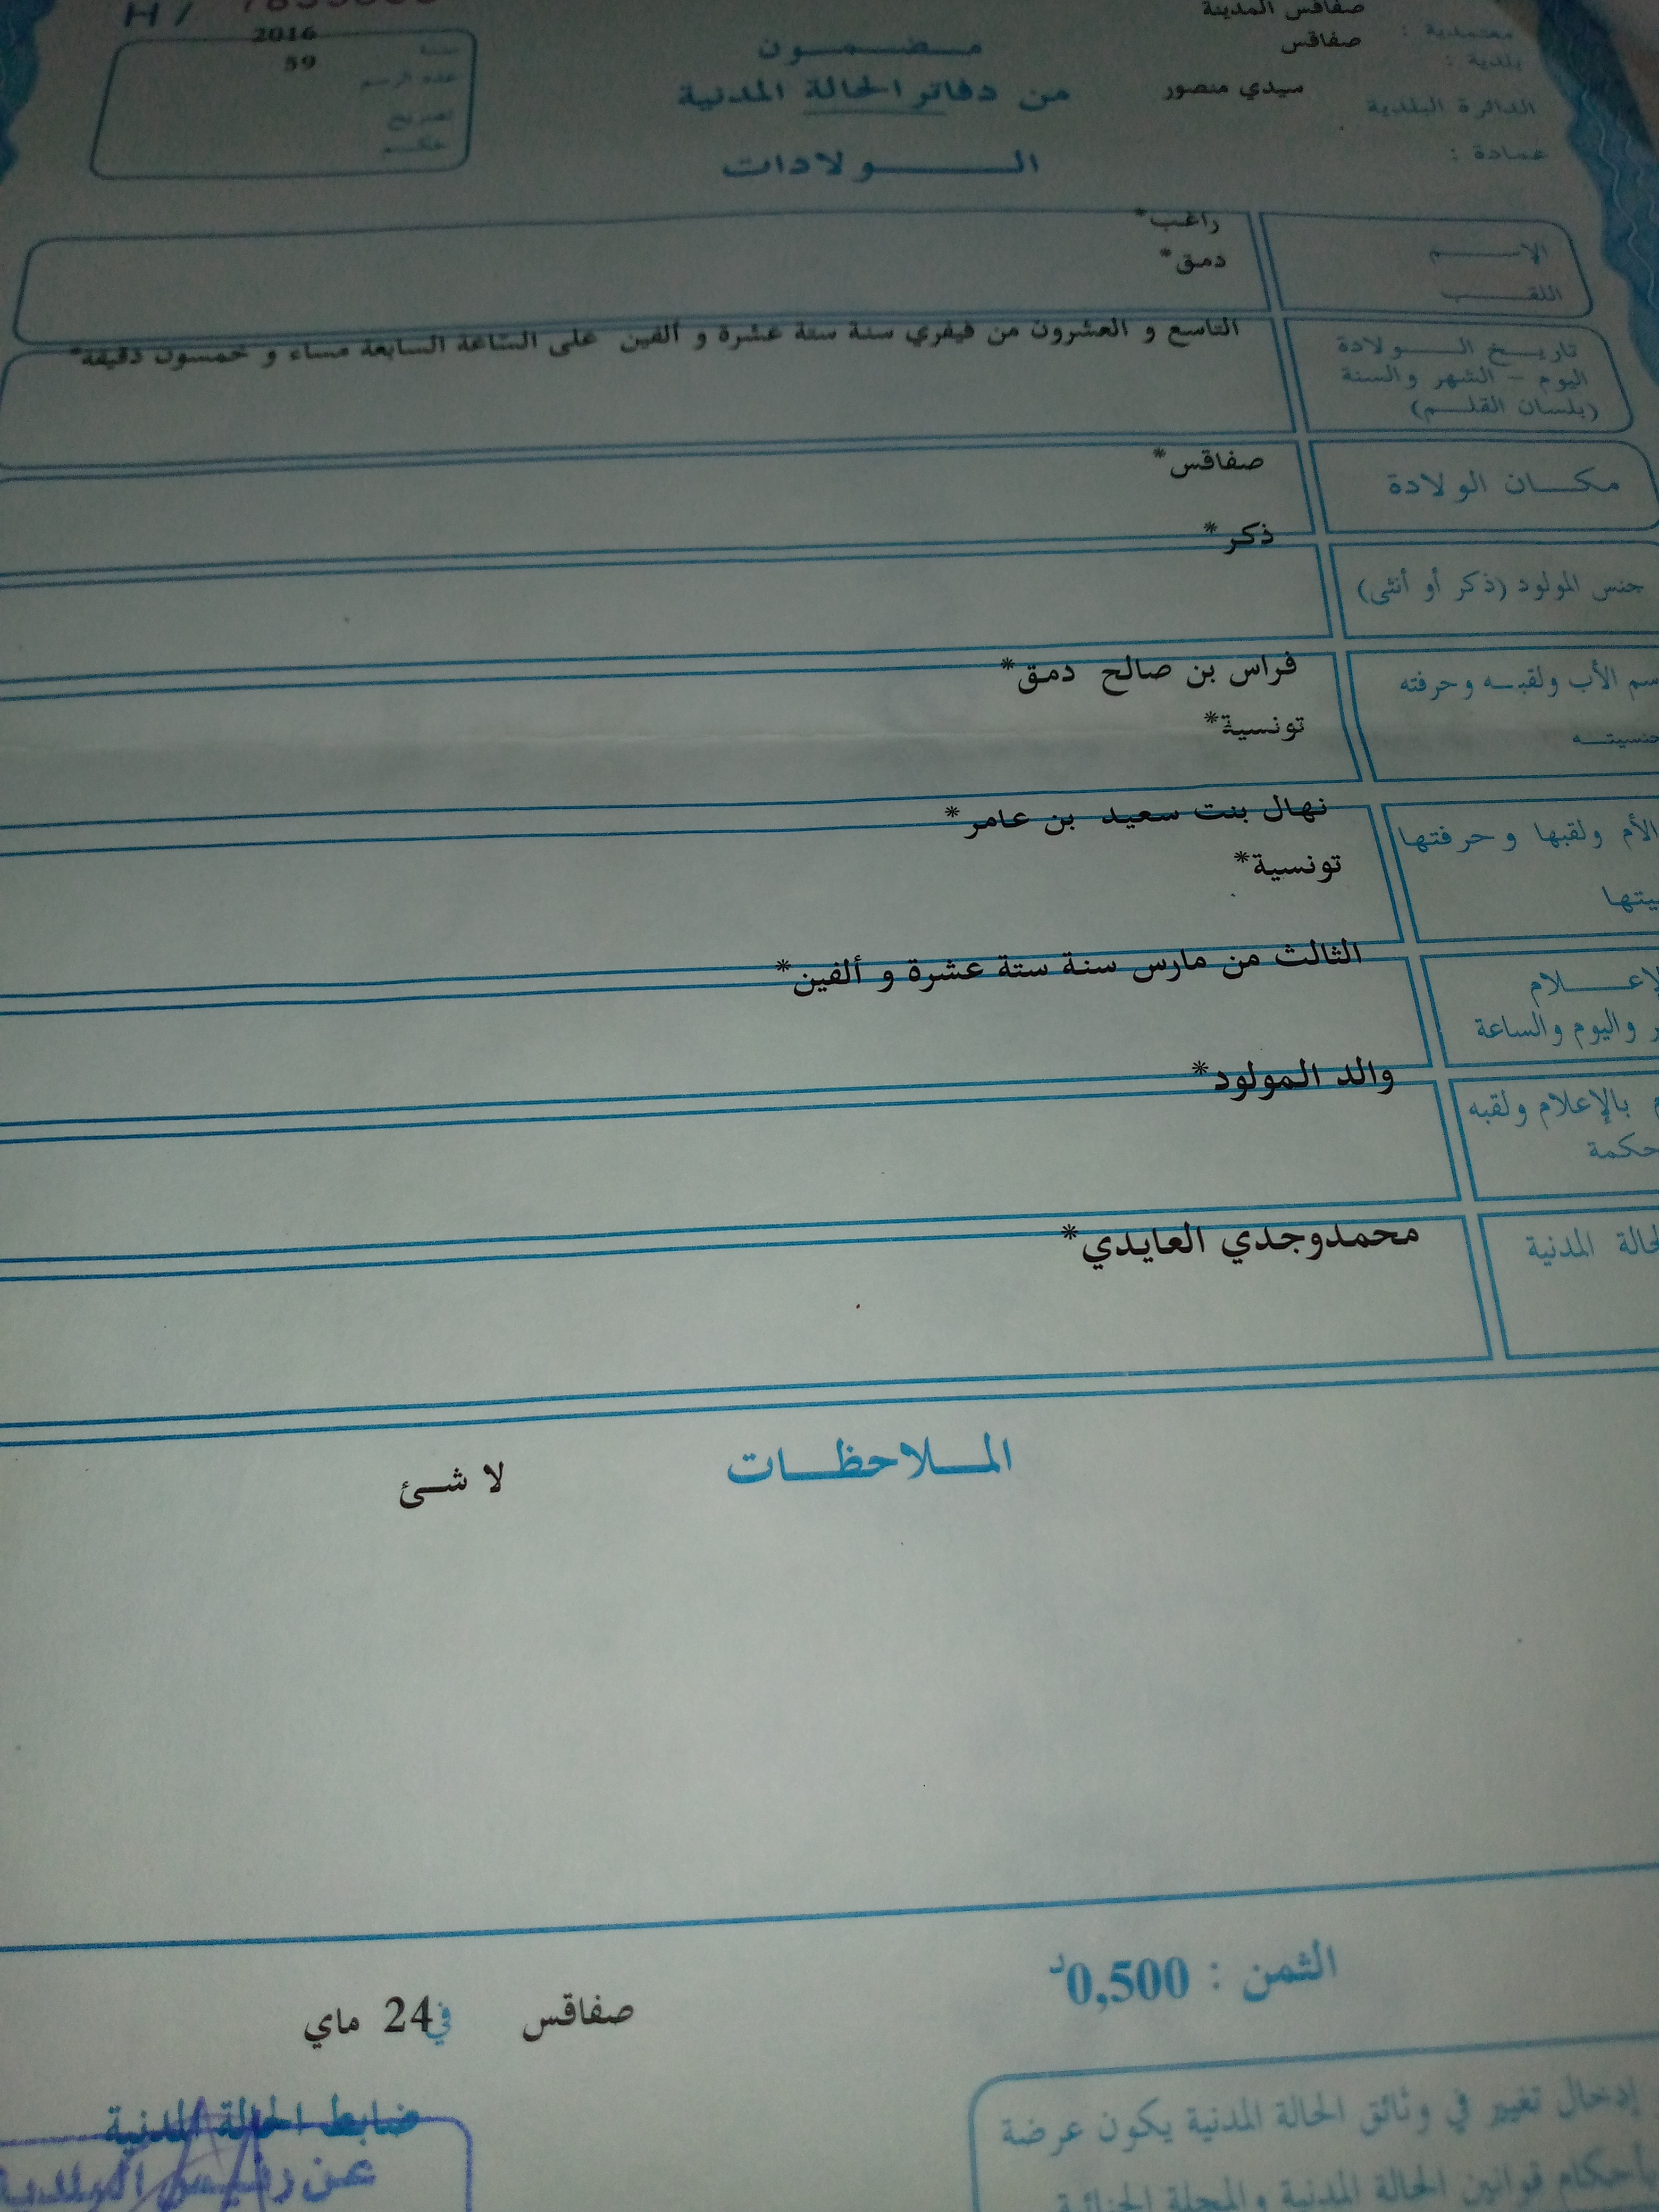 H /
صفاقس المدينة
معتمدية :
صفاقس
بلدية :
سيدي منصور
الدائرة البلدية
عمادة :
مضمون
من دفاتر الحالة المدنية
الولادات
2016
سنة
59
عدد الرسم
تصريح
حكم
الاسم
راغب*
اللقب
دمق*
تاريخ الولادة
اليوم - الشهر والسنة
(بلسان القلم)
التاسع و العشرون من فيفري سنة ستة عشرة و ألفين على الساعة السابعة مساء و خمسون دقيقة*
مكان الولادة
صفاقس*
جنس المولود (ذكر أو أنثى)
ذكر*
سم الأب ولقبه وحرفته
فراس بن صالح دمق*
جنسيته
تونسية*
الأم ولقبها وحرفتها
نهال بنت سعيد بن عامر*
يتها
تونسية*
لإعلام
ر واليوم والساعة
الثالث من مارس سنة ستة عشرة و ألفين*
م بالإعلام ولقبه
حكمة
والد المولود*
لحالة المدنية
محمدوجدي العايدي*
الملاحظات
لا شئ
الثمن : 0,500د
صفاقس في 24 ماي
ضابط الحالة المدنية
عن رئيس البلدية
إدخال تغيير في وثائق الحالة المدنية يكون عرضة
بأحكام قوانين الحالة المدنية والمجلة الجنائية